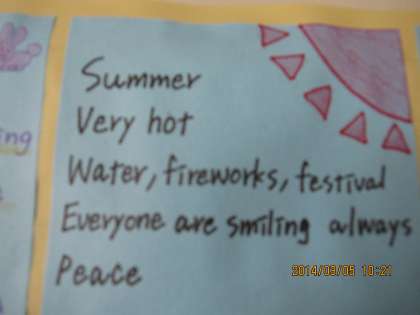 Summer
Very hot
Water, fireworks, festival
Everyone are smiling always
Peace
ing
2014/08/05 10:21